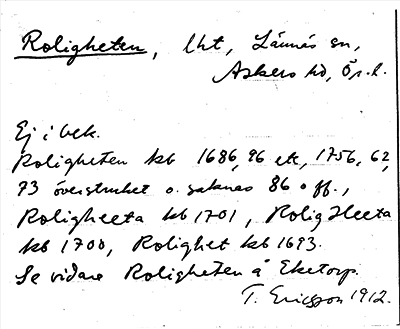 Roligheten, lht, Lännäs sn,
Askers hd, Ör. l.
Ej i bek.
Roligheten kb 1686, 96 etc, 1756, 62,
73 överstruket o. saknas 86 o ff.,
Rolig​heeta kb 1701, Rolig Heeta
kb 1700, Rolighet kb 1693.
Se vidare Roligheten å Eketorp.
T. Ericsson 1912.